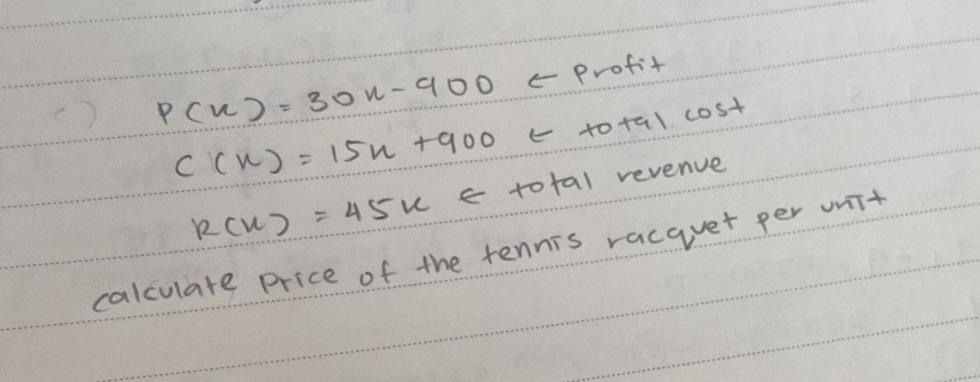 c)
P(x) = 30x - 900 ← Profit
C(x) = 15x + 900 ← total cost
R(x) = 45x ← total revenue
calculate price of the tennis racquet per unit